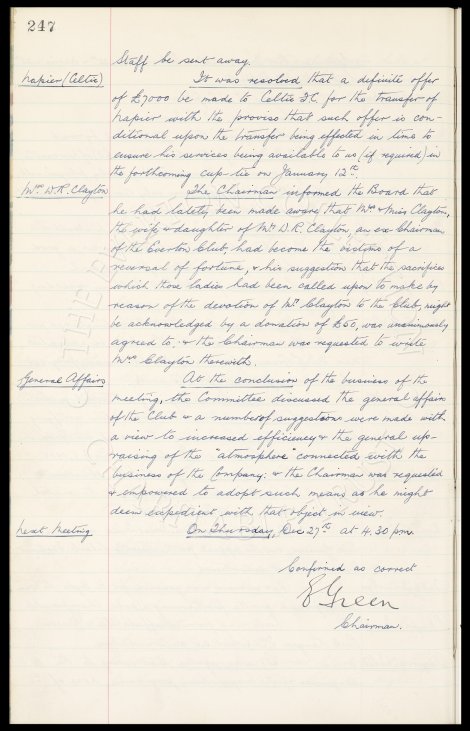 247
Staff be sent away.
Napier (Celtic) It was resolved that a definite offer
of £7000 be made to Celtic F.C. for the transfer of
Napier with the proviso that such offer is con-
ditional upon the transfer being effected in time to
ensure his services being available to us (if required) in
the forthcoming cup-tie on January 12th.
Mr. D.R. Clayton The Chairman informed the Board that
he had lately been made aware that Mrs & Miss Clayton,
the wife & daughter of Mr D.R. Clayton, an ex Chairman
of the Everton Club, had become the victims of a
reversal of fortune, & his suggestion that the sacrifices
which those ladies had been called upon to make by
reason of the devotion of Mr Clayton to the Club, might
be acknowledged by a donation of £50, was unanimously
agreed to. & the Chairman was requested to write
Mrs Clayton therewith.
General Affairs At the conclusion of the business of the
meeting, the Committee discussed the general affairs
of the Club & a number of suggestions were made with
a view to increased efficiency & the general up-
raising of the "atmosphere" connected with the
business of the Company: & the Chairman was requested
& empowered to adopt such means as he might
deem expedient with that object in view.
Next Meeting On Thursday, Dec 27th at 4.30 pm.
Confirmed as correct
E Green
Chairman.